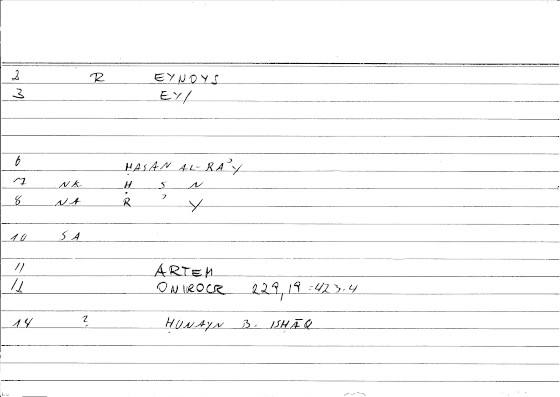 2 R EYNOYS
3 EY/
6 ḤASAN AL-RAʾY
7 NK Ḥ S N
8 NA R ʾ Y
10 SA
11 ARTEM
12 ONIROCR 229,19 = 423.4
14 ? ḤUNAYN B. ISḤĀQ